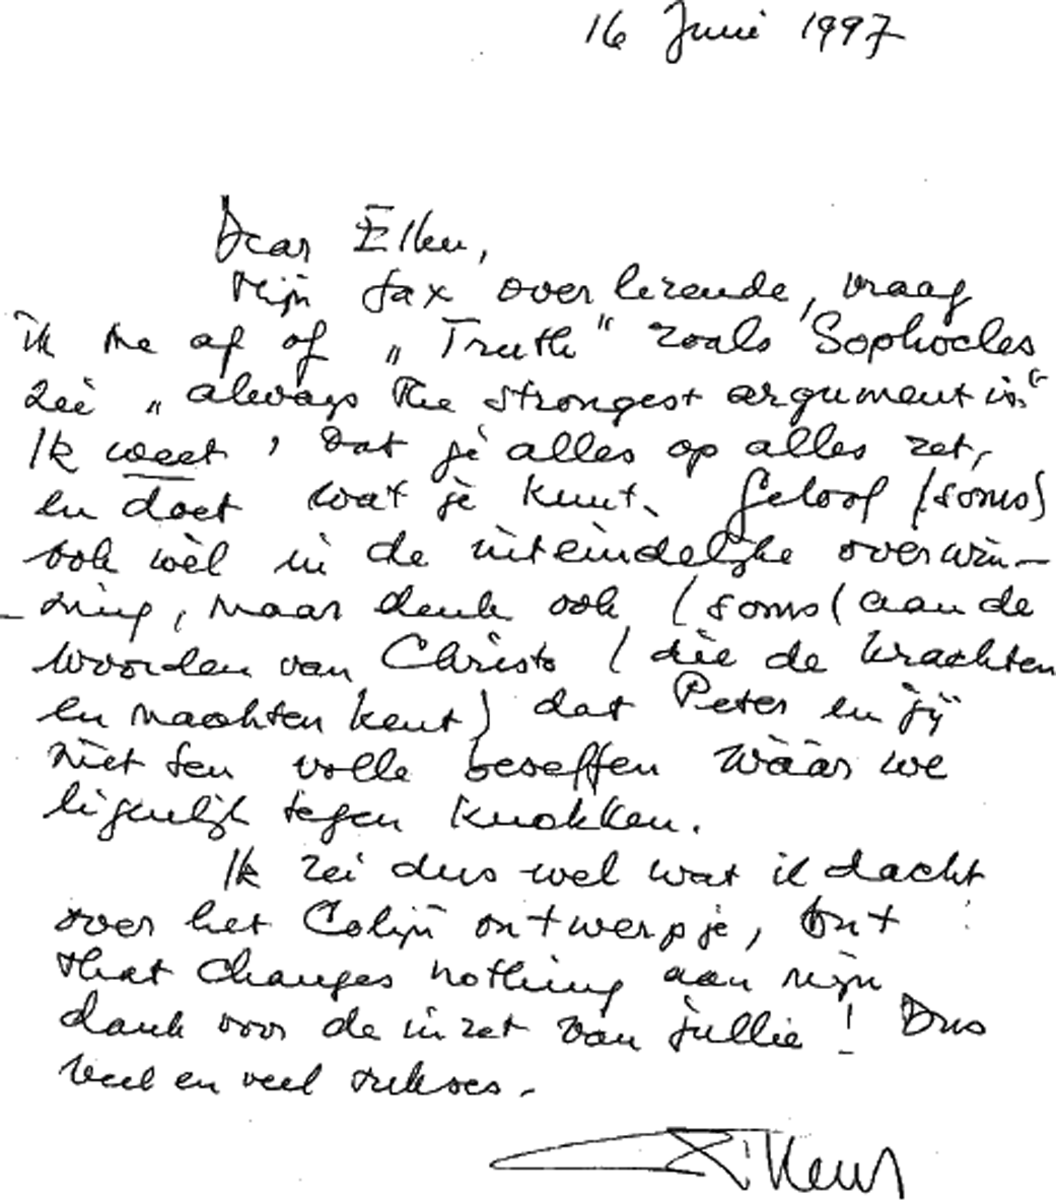 16 Juni 1997
Dear Ellen,
Mijn fax over lezende, vraag
ik me af of „Truth" zoals Sophocles
zei „always the strongest argument is."
Ik weet, dat je alles op alles zet,
en doet wat je kunt. Geloof (soms)
ook wèl in de uiteindelijke overwin-
-ning, maar denk ook (soms( aan de
woorden van Christo (die de krachten
en machten kent) dat Peter en jij
niet ten volle beseffen wààr we
eigenlijk tegen knokken.
Ik zei dus wel wat ik dacht
over het Colijn ontwerpje, but
that changes nothing aan mijn
dank voor de inzet van jullie! Dus
veel en veel sukses.